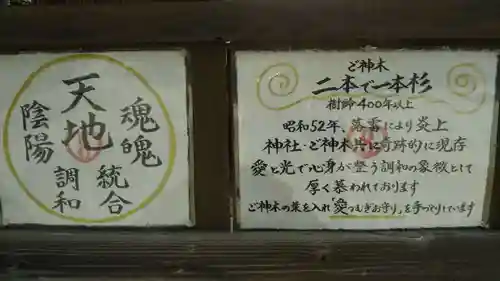 天地
魂魄
陰陽
統合
調和
ご神木
二本で一本杉
樹齢400年以上
昭和52年、落雷により炎上
神社・ご神木共に奇跡的に現存
愛と光で心身が整う調和の象徴として
厚く慕われております
ご神木の葉を入れ「愛つむぎお守り」を手づくりしています